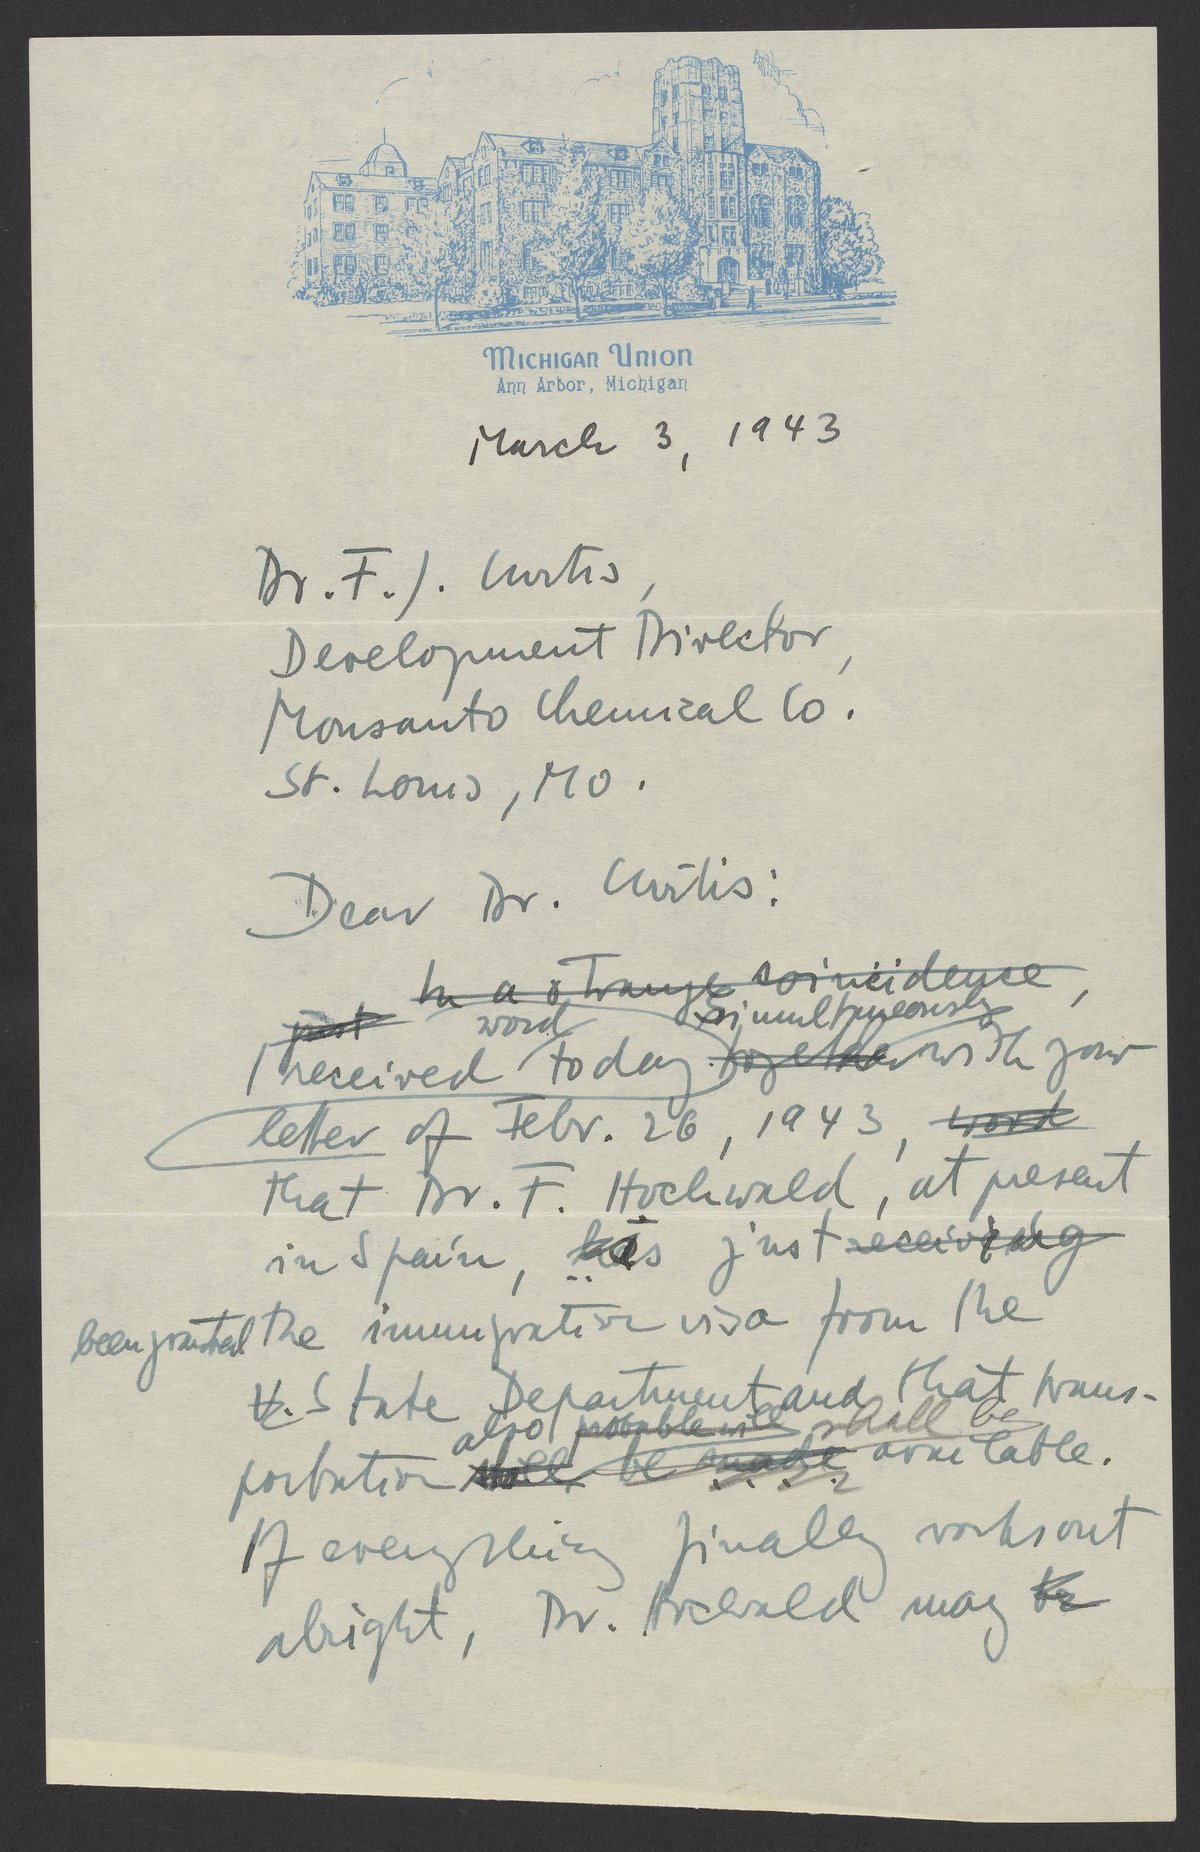 Michigan Union
Ann Arbor, Michigan
March 3, 1943
Dr. F. J. Curtis,
Development Director,
Monsanto Chemical Co.
St. Louis, Mo.
Dear Dr. Curtis:
In a strange coincidence,
just word simultaneously
I received today together with your
letter of Febr. 26, 1943, word
that Dr. F. Hochwald, at present
in Spain, has just receiving
been granted the immigration visa from the
U.S. State Department and that trans-
also probable will shall be
portation will be made available.
If everything finally works out
alright, Dr. Hochwald may be